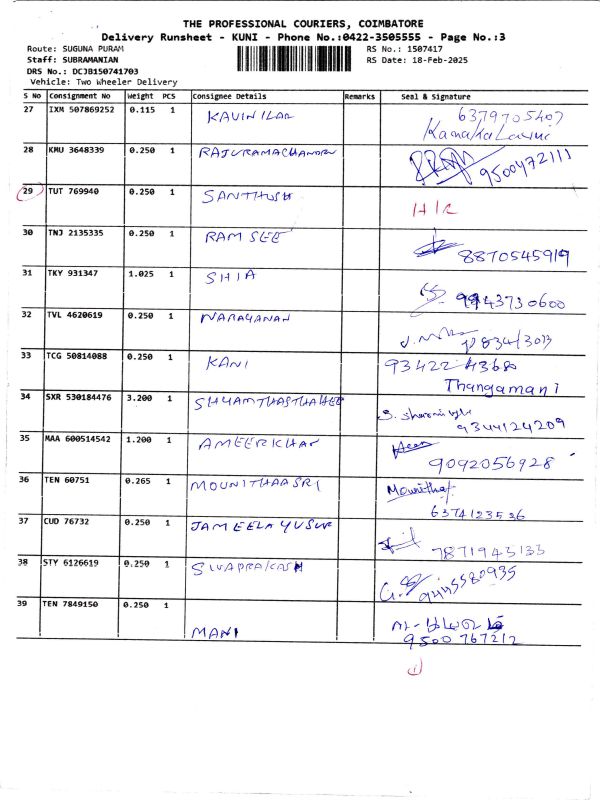 THE PROFESSIONAL COURIERS, COIMBATORE
Delivery Runsheet - KUNI - Phone No.:0422-3505555 - Page No.:3
Route: SUGUNA PURAM RS No.: 1507417
Staff: SUBRAMANIAN RS Date: 18-Feb-2025
DRS No.: DCJB150741703
Vehicle: Two Wheeler Delivery
S No Consignment No Weight PCS Consignee Details Remarks Seal & Signature
27 IXM 507869252 0.115 1 KAVINILAN 6379705407
28 KMU 3648339 0.250 1 RAJURAMACHANDRN 9500472111
29 TUT 769940 0.250 1 SANTHOSH
30 TNJ 2135335 0.250 1 RAM SEE 8870545919
31 TKY 931347 1.025 1 SHIA 9943730600
32 TVL 4620619 0.250 1 NARAYANAN
33 TCG 50814088 0.250 1 KANI 93422 43680
Thangamani
34 SXR 530184476 3.200 1 SHYAMTHASTHAHEE
9344124209
35 MAA 600514542 1.200 1 AMEERKHAN
9092056928
36 TEN 60751 0.265 1 MOUNITHAASRI Mounitha
6374123536
37 CUD 76732 0.250 1 JAMEELA YUSUF
7871943133
38 STY 6126619 0.250 1 SIVAPRAKASH 9445580935
39 TEN 7849150 0.250 1 MANI
9500 767212
1